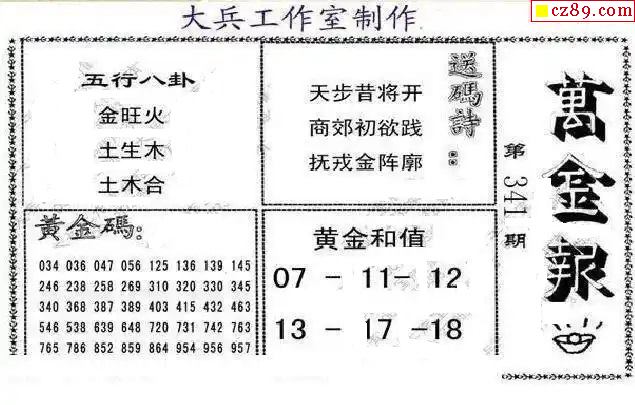 大兵工作室制作
cz89.com
五行八卦
金旺火
土生木
土木合
送碼詩：
天步昔将开
商郊初欲践
抚戎金阵廓
萬金報
第341期
黃金碼：
034 036 047 056 125 136 139 145
246 238 258 269 310 320 330 345
340 368 387 389 408 415 432 463
546 538 639 648 720 731 742 763
765 786 852 859 864 954 956 957
黄金和值
07 - 11 - 12
13 - 17 - 18